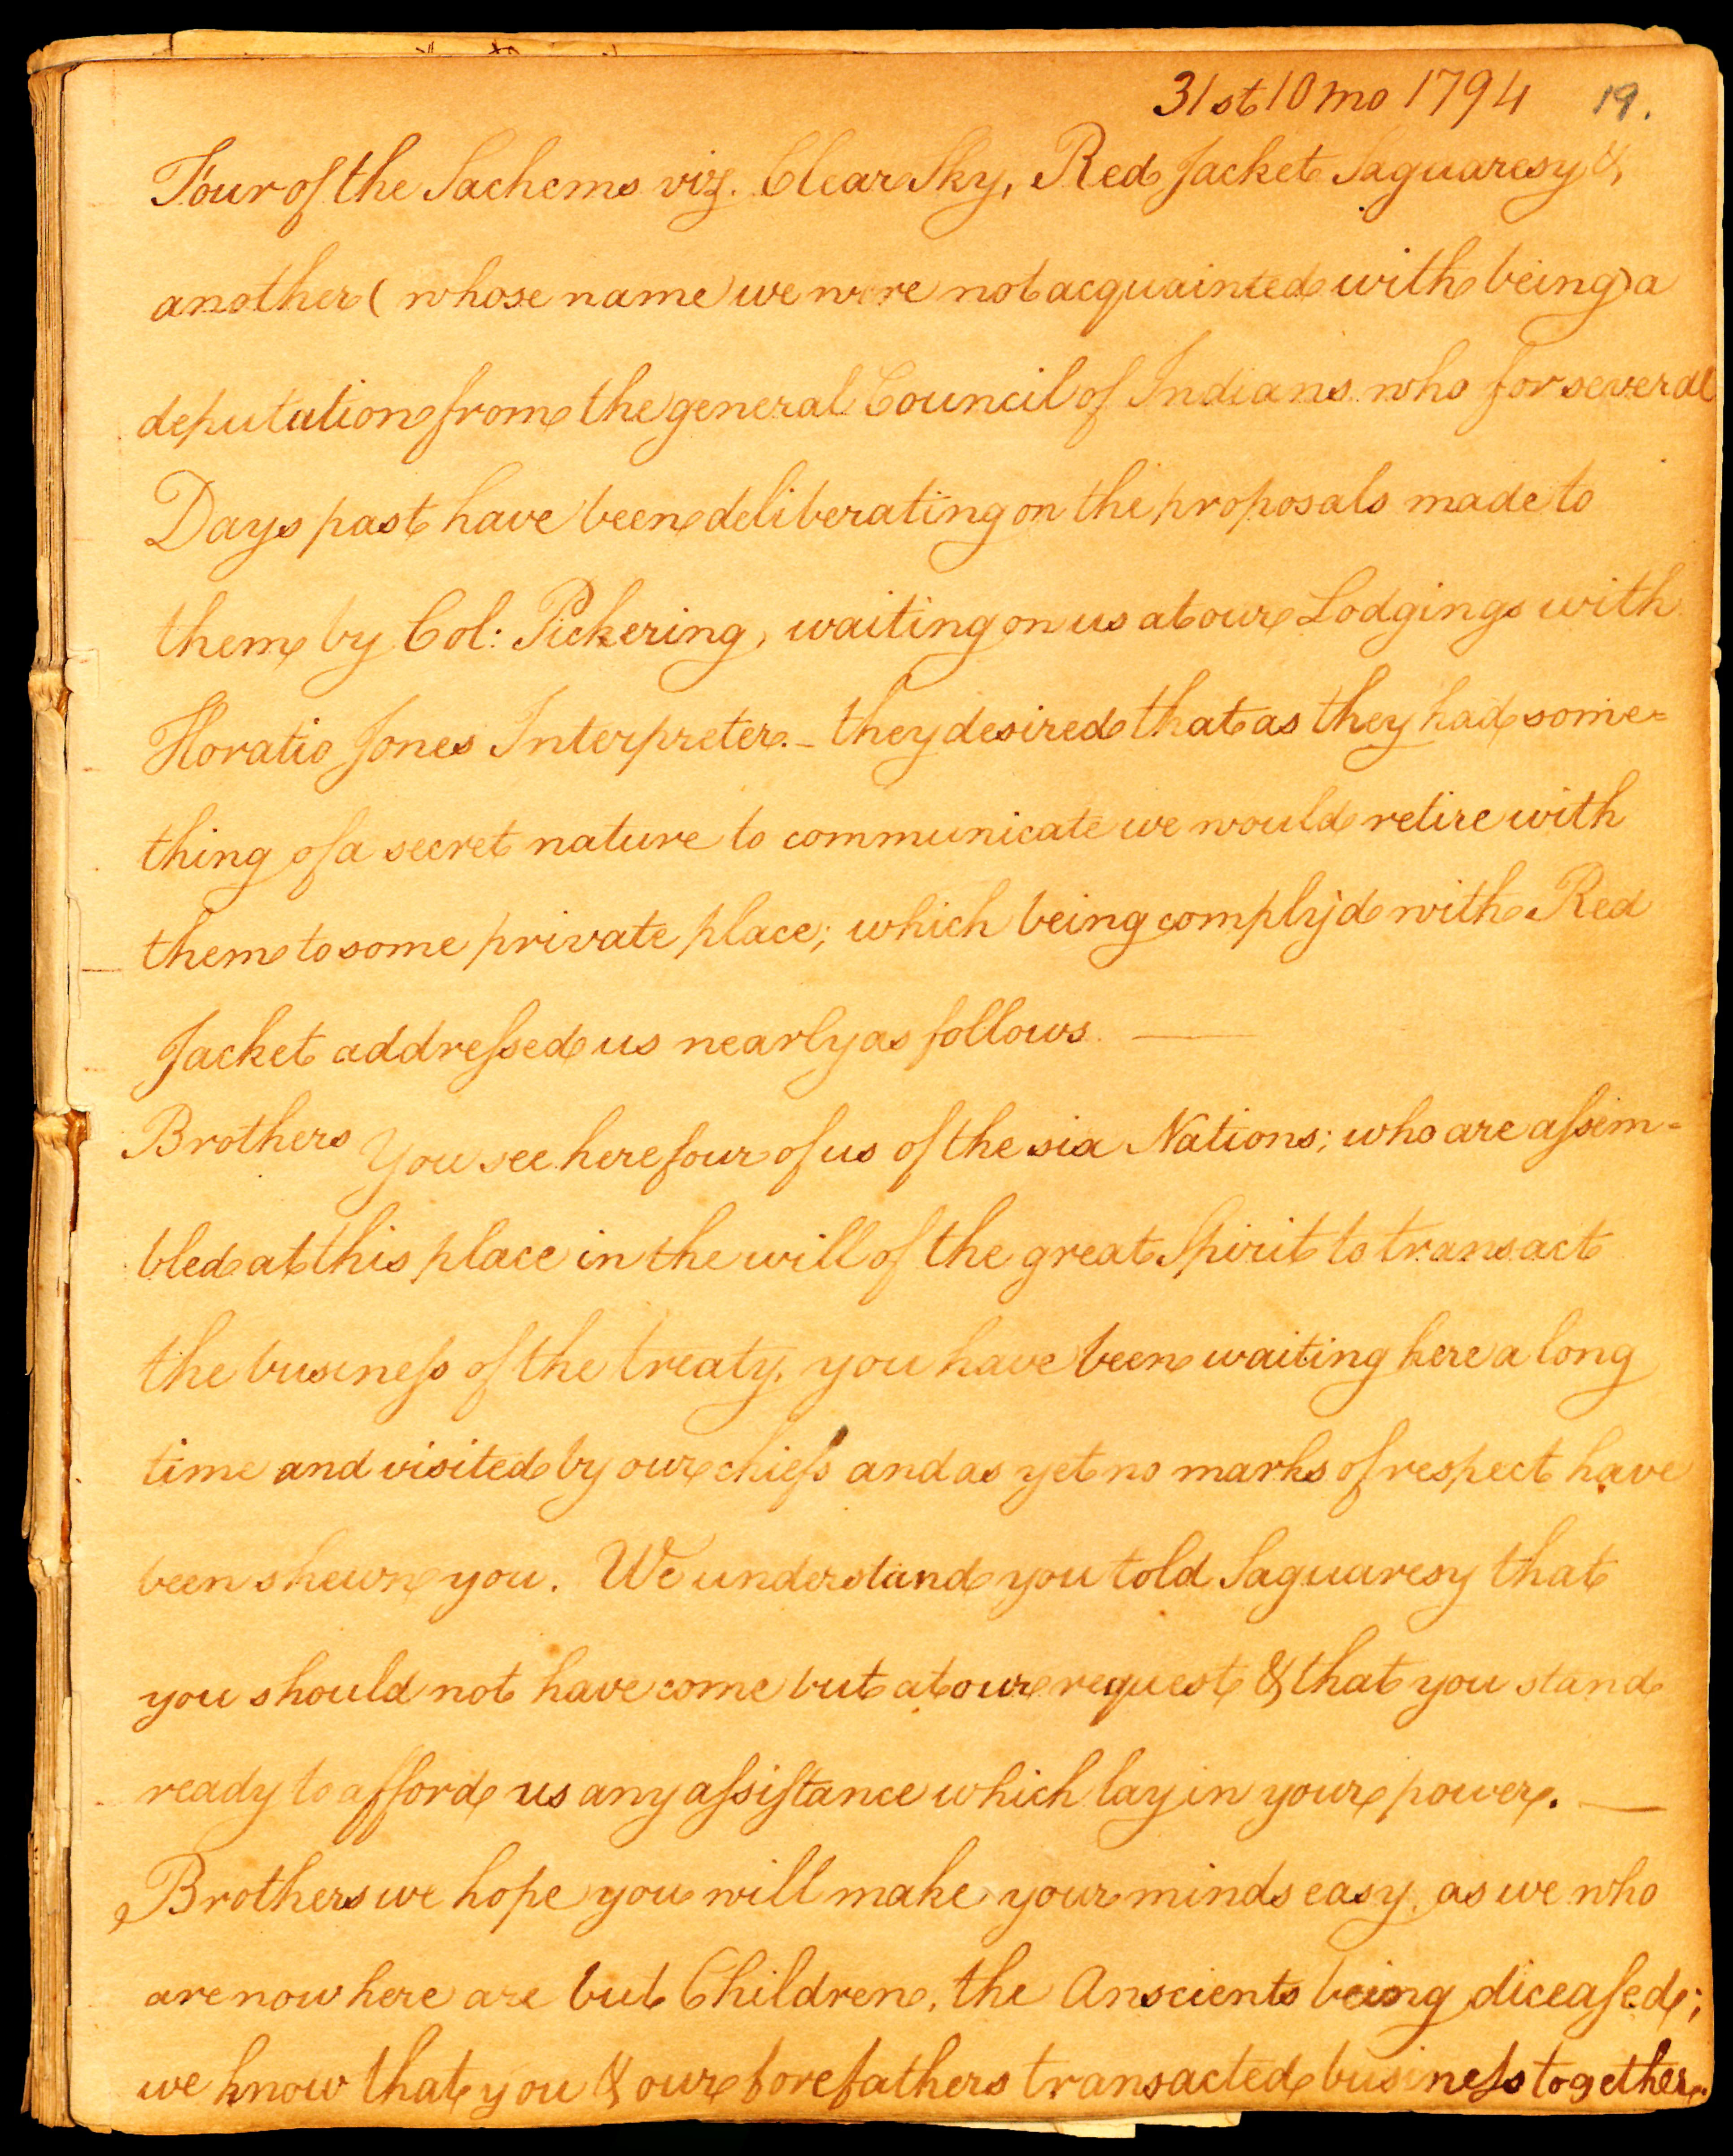 31st 10 mo 1794 19.
Four of the Sachems viz. Clear Sky, Red Jacket Saguaresy &
another ( whose name we were not acquainted with being) a
deputation from the general Council of Indians who for several
Days past have been deliberating on the proposals made to
them by Col: Pickering, waiting on us at our Lodgings with
Horatio Jones Interpreter. – they desired that as they had some=
thing of a secret nature to communicate we would retire with
them to some private place; which being comply'd with Red
Jacket addreſsed us nearly as follows. —
Brothers You see here four of us of the six Nations; who are aſsem-
bled at this place in the will of the great Spirit to transact
the busineſs of the treaty, you have been waiting here a long
time and visited by our chiefs and as yet no marks of respect have
been shewn you. We understand you told Saguaresy that
you should not have come but at our request & that you stand
ready to afford us any aſsiſtance which lay in your power. —
Brothers we hope you will make your minds easy, as we who
are now here are but Children, the Anscients being diceaſed;
we know that you & our forefathers transacted busineſs together.